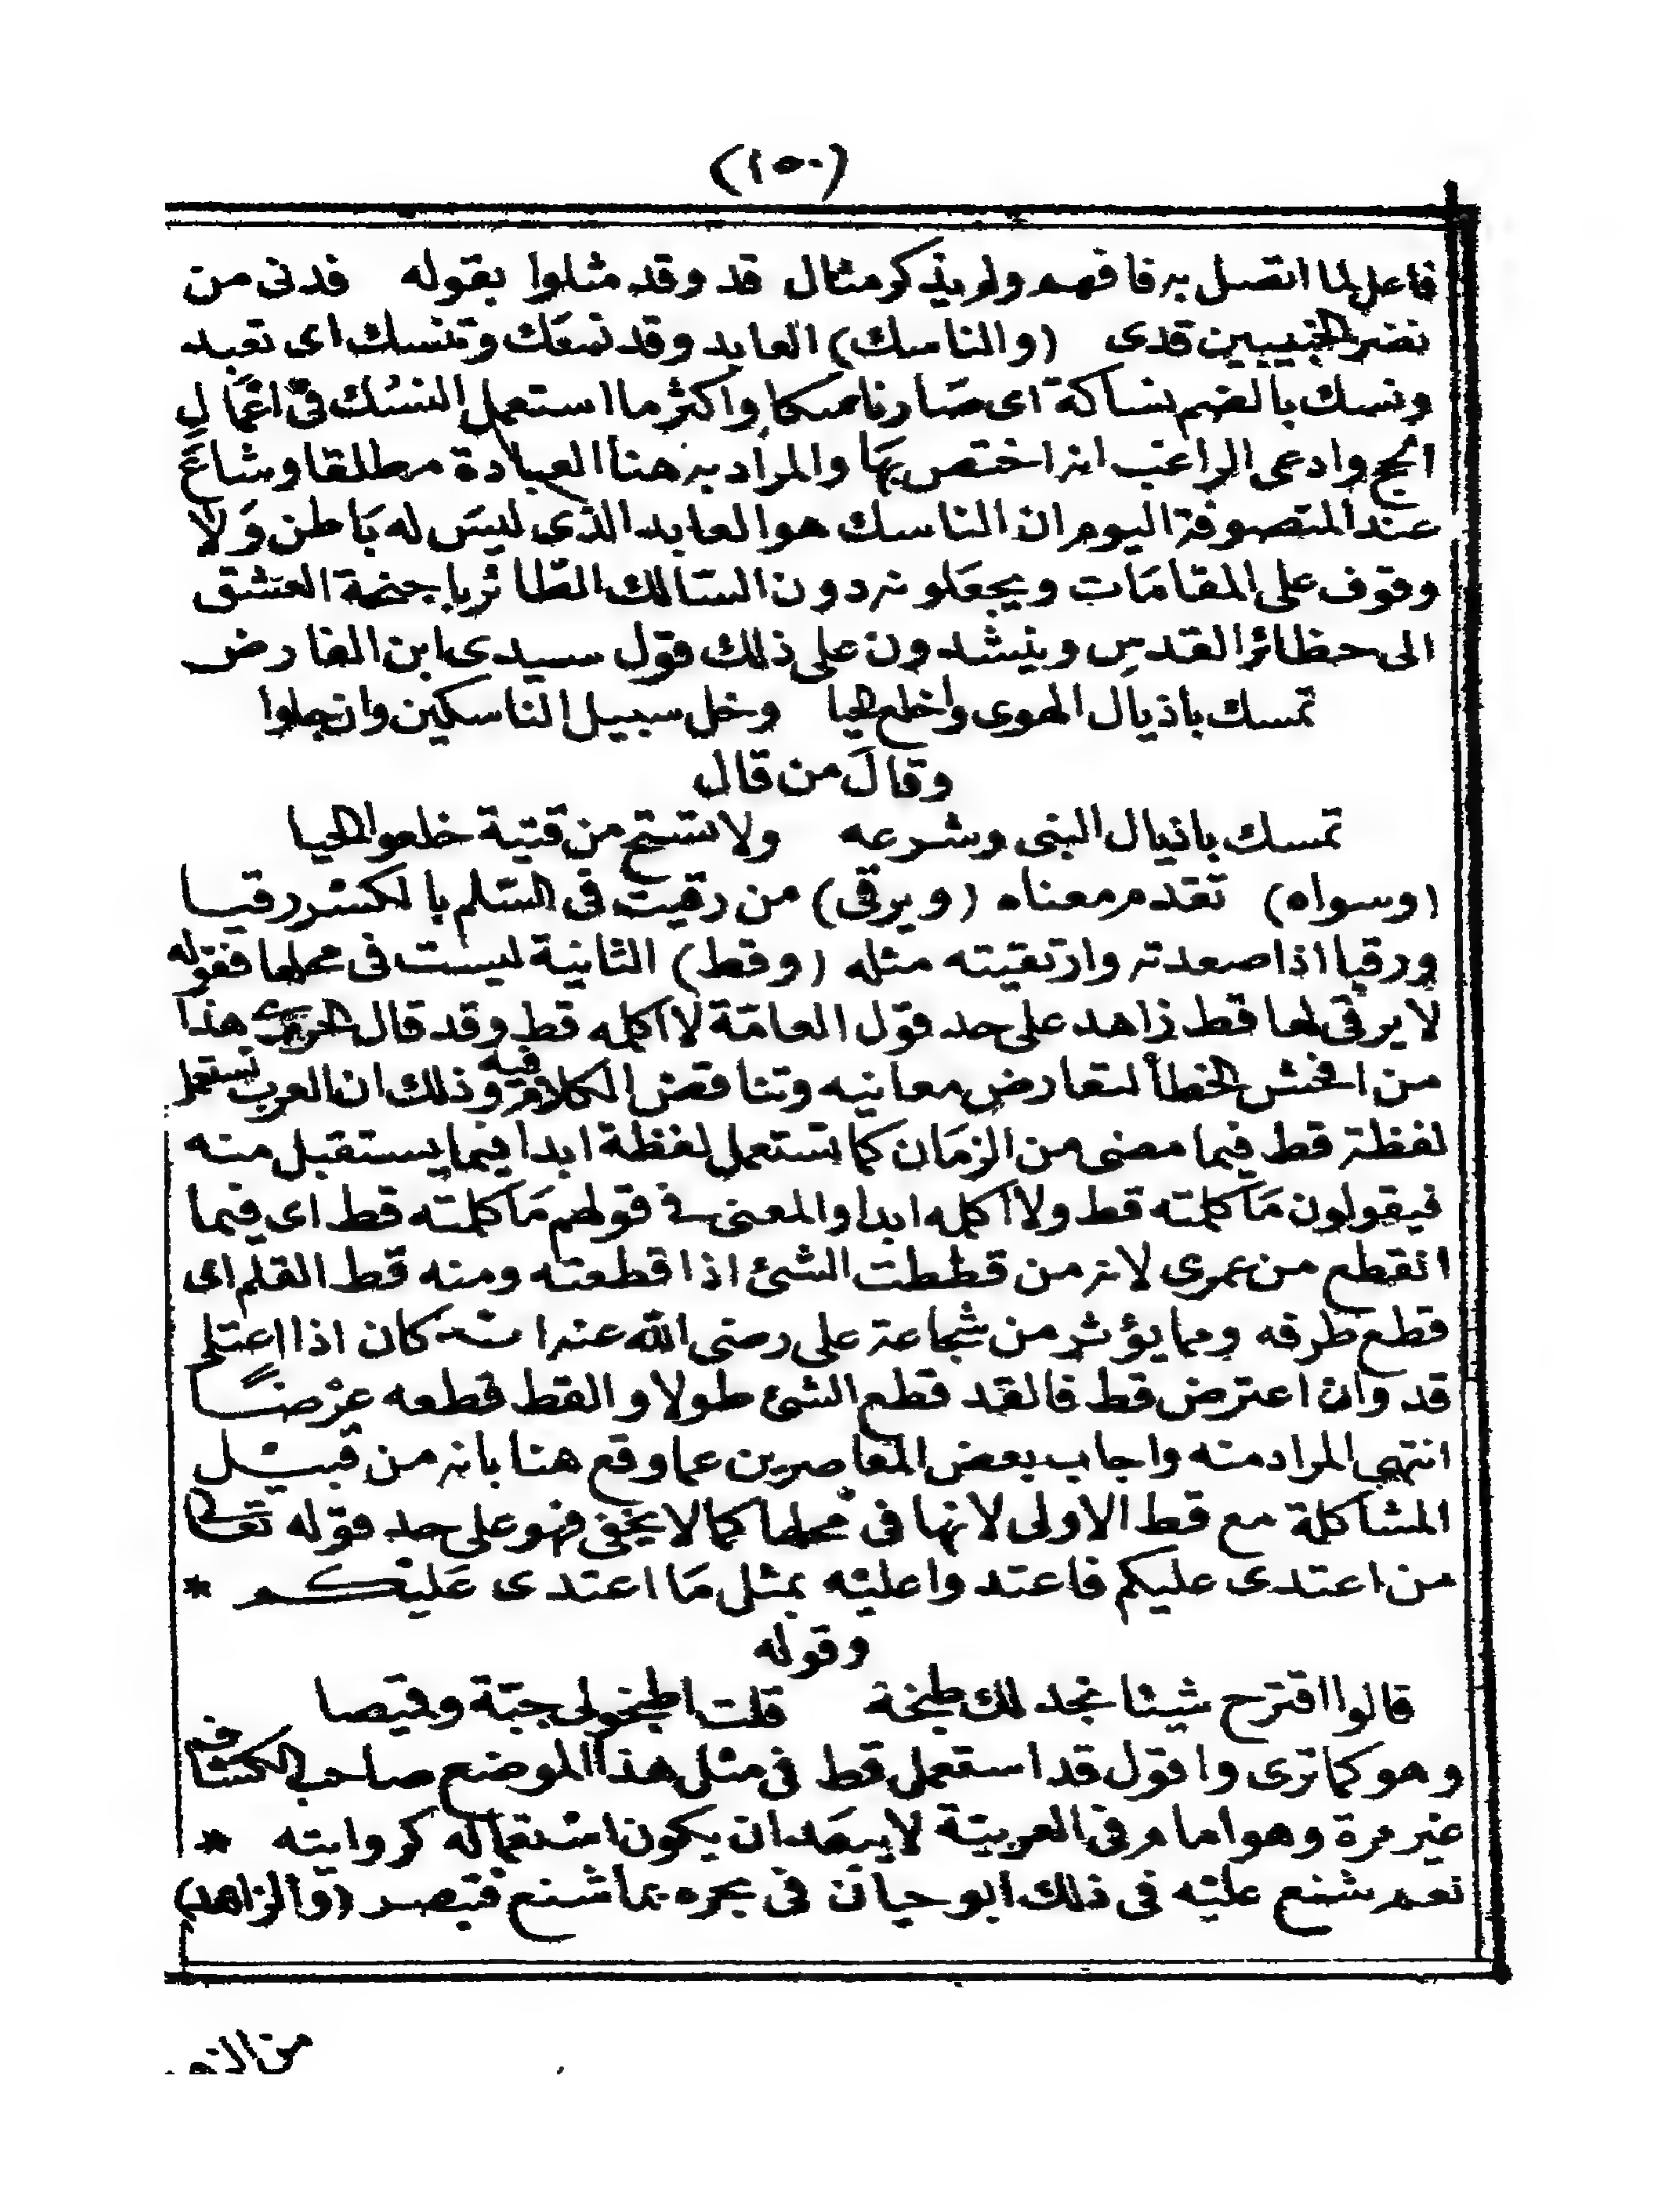 (١٥٠)
فاعل لما اتصل به فافهم ولم يذكر مثال قد وقد مثلوا بقوله قدنى من
نضر الخبيبين قدى (والناسك) العابد وقد نسك وتنسك اى تعبد
ونسك بالضم نساكة اى صار ناسكا واكثر ما استعمل النسك فى اعمال
الحج وادعى الراغب انه اختص بها والمراد به هنا العبادة مطلقا وشاع
عند المتصوفة اليوم ان الناسك هو العابد الذى ليس له باطن ولا
وقوف على المقامات ويجعلونه دون السالك الطائر باجنحة العشق
الى حظائر القدس وينشدون على ذلك قول سيدى ابن الفارض
تمسك باذيال الهوى واخلع الحيا وخل سبيل الناسكين وان جلوا
وقال من قال
تمسك باذيال النبى وشرعه ولا تستح من فتية خلعوا الحيا
(وسواه) تقدم معناه (ويرقى) من رقيت فى السلم بالكسر رقيا
ورقيا اذا صعدته وارتقيته مثله (وقط) الثانية ليست فى محلها فقوله
لا يرقى لها قط زاهد على حد قول العامة لا اكله قط وقد قال الحريرى هذا
من افحش الخطأ لتعارض معانيه وتناقض الكلام فيه وذلك ان العرب تستعمل
لفظة قط فيما مضى من الزمان كما تستعمل لفظة ابدا فيما يستقبل منه
فيقولون ما كلمته قط ولا اكله ابدا والمعنى فى قولهم ما كلمته قط اى فيما
انقطع من عمرى لانه من قططت الشئ اذا قطعته ومنه قط القلم اى
قطع طرفه ومما يؤثر من شجاعة على رضى الله عنه انه كان اذا اعتلى
قد وان اعترض قط فالقد قطع الشئ طولا والقط قطعه عرضا
انتهى المراد منه واجاب بعض المعاصرين عما وقع هنا بانه من قبيل
المشاكلة مع قط الاولى لانها فى محلها كما لا يخفى فهو على حد قوله تعالى
من اعتدى عليكم فاعتدوا عليه بمثل ما اعتدى عليكم *
وقوله
قالوا اقترح شيئا نجد لك طبخة قلت اطبخوا لى جبة وقميصا
وهو كما ترى واقول قد استعمل قط فى مثل هذا الموضع صاحب الكشاف
غير مرة وهو امام فى العربية لا يبعد ان يكون استعماله كروايته *
نعم شنع عليه فى ذلك ابو حيان فى بحره بما شنع فتبصر (والزاهد)